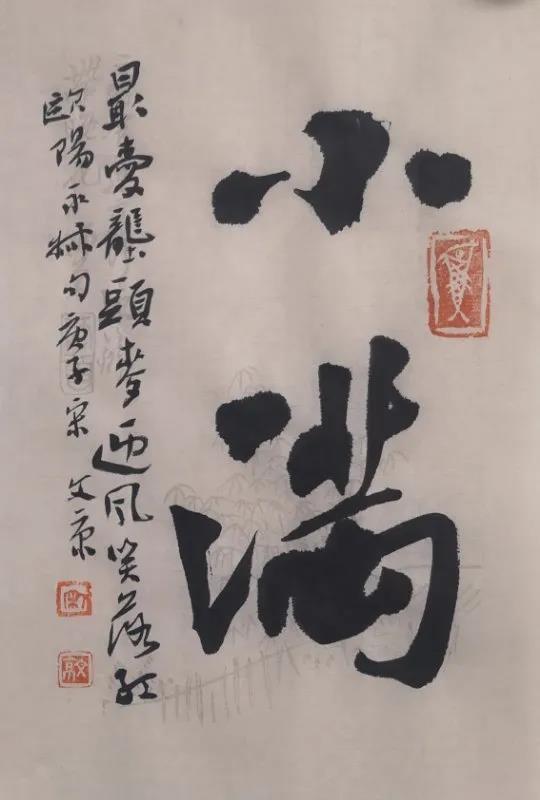 小滿
最愛壟頭麥迎风笑落紅
欧陽永叔句庚子宋文京